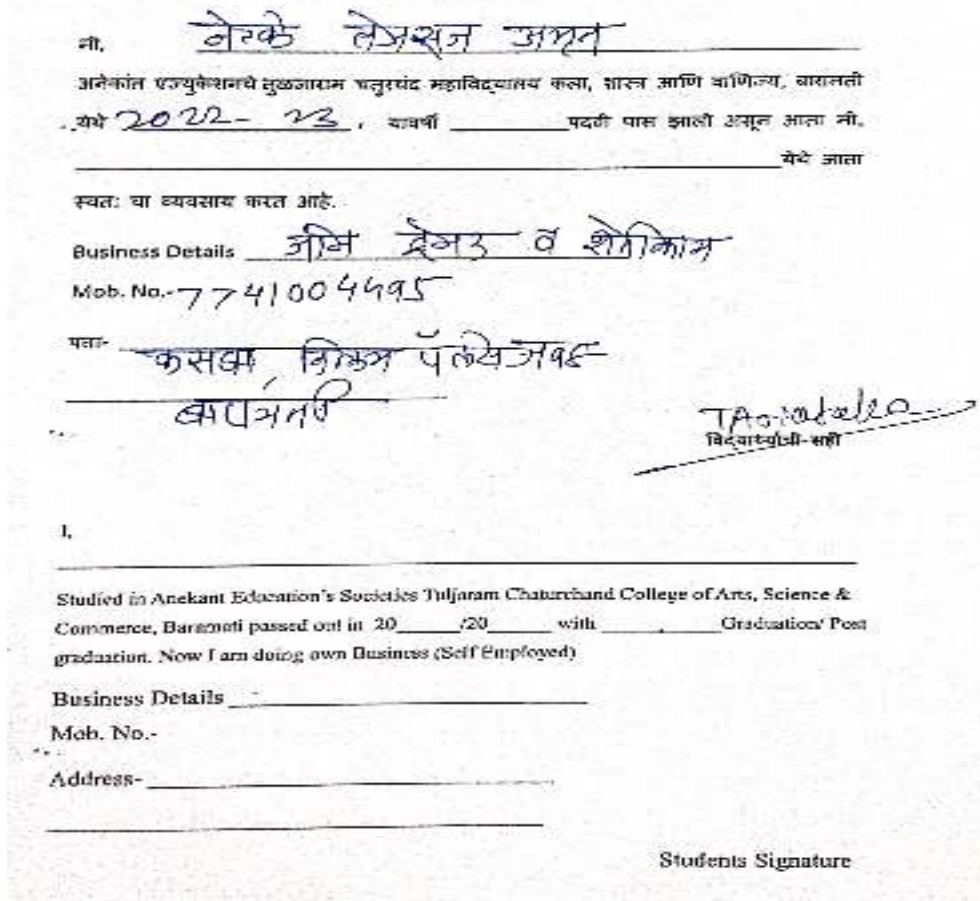 मी, नेरके तेजसन अमृत
अनेकांत एज्युकेशनचे तुळजाराम चतुरचंद महाविद्यालय कला, शास्त्र आणि वाणिज्य, बारामती
येथे 2022-23, यावर्षी ________ पदवी पास झालो असून आता मी,
येथे आता
स्वतः चा व्यवसाय करत आहे.
Business Details जीम ट्रेनर व शेतीकाम
Mob. No.-7741004495
पत्ता- कसबा
बारामती
विद्यार्थ्याची-सही
I,
Studied in Anekant Education's Societies Tuljaram Chaturchand College of Arts, Science &
Commerce, Baramati passed out in 20______/20______ with ________Graduation/ Post
graduation. Now I am doing own Business (Self Employed)
Business Details
Mob. No.-
Address-
Students Signature